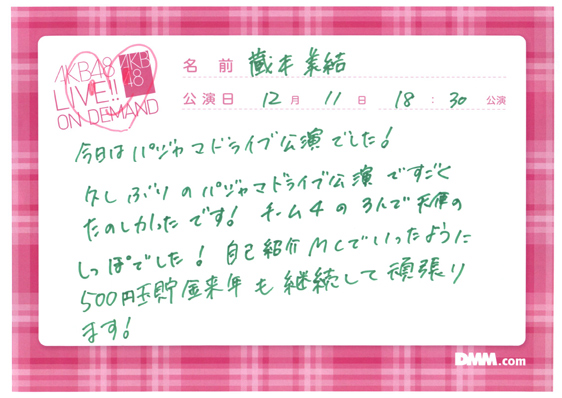 AKB48
LIVE!!
ON DEMAND
AKB
48
名前 蔵本美結
公演日 12月 11日 18:30 公演
今日はパジャマドライブ公演でした!
久しぶりのパジャマドライブ公演ですごく
たのしかったです! チーム4の3人で天使の
しっぽでした! 自己紹介MCでいったように
500円玉貯金来年も継続して頑張り
ます!
DMM.com